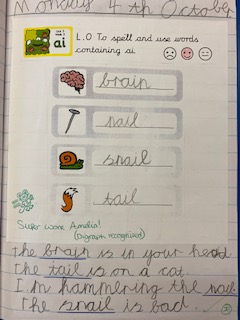 Monday 4th October
ai
L.O To spell and use words
containing ai
brain
nail
snail
tail
Super work Amelia!
(Digraph recognised)
The brain is in your head
The tail is on a cat.
I'm hammering the nail
The snail is bad.